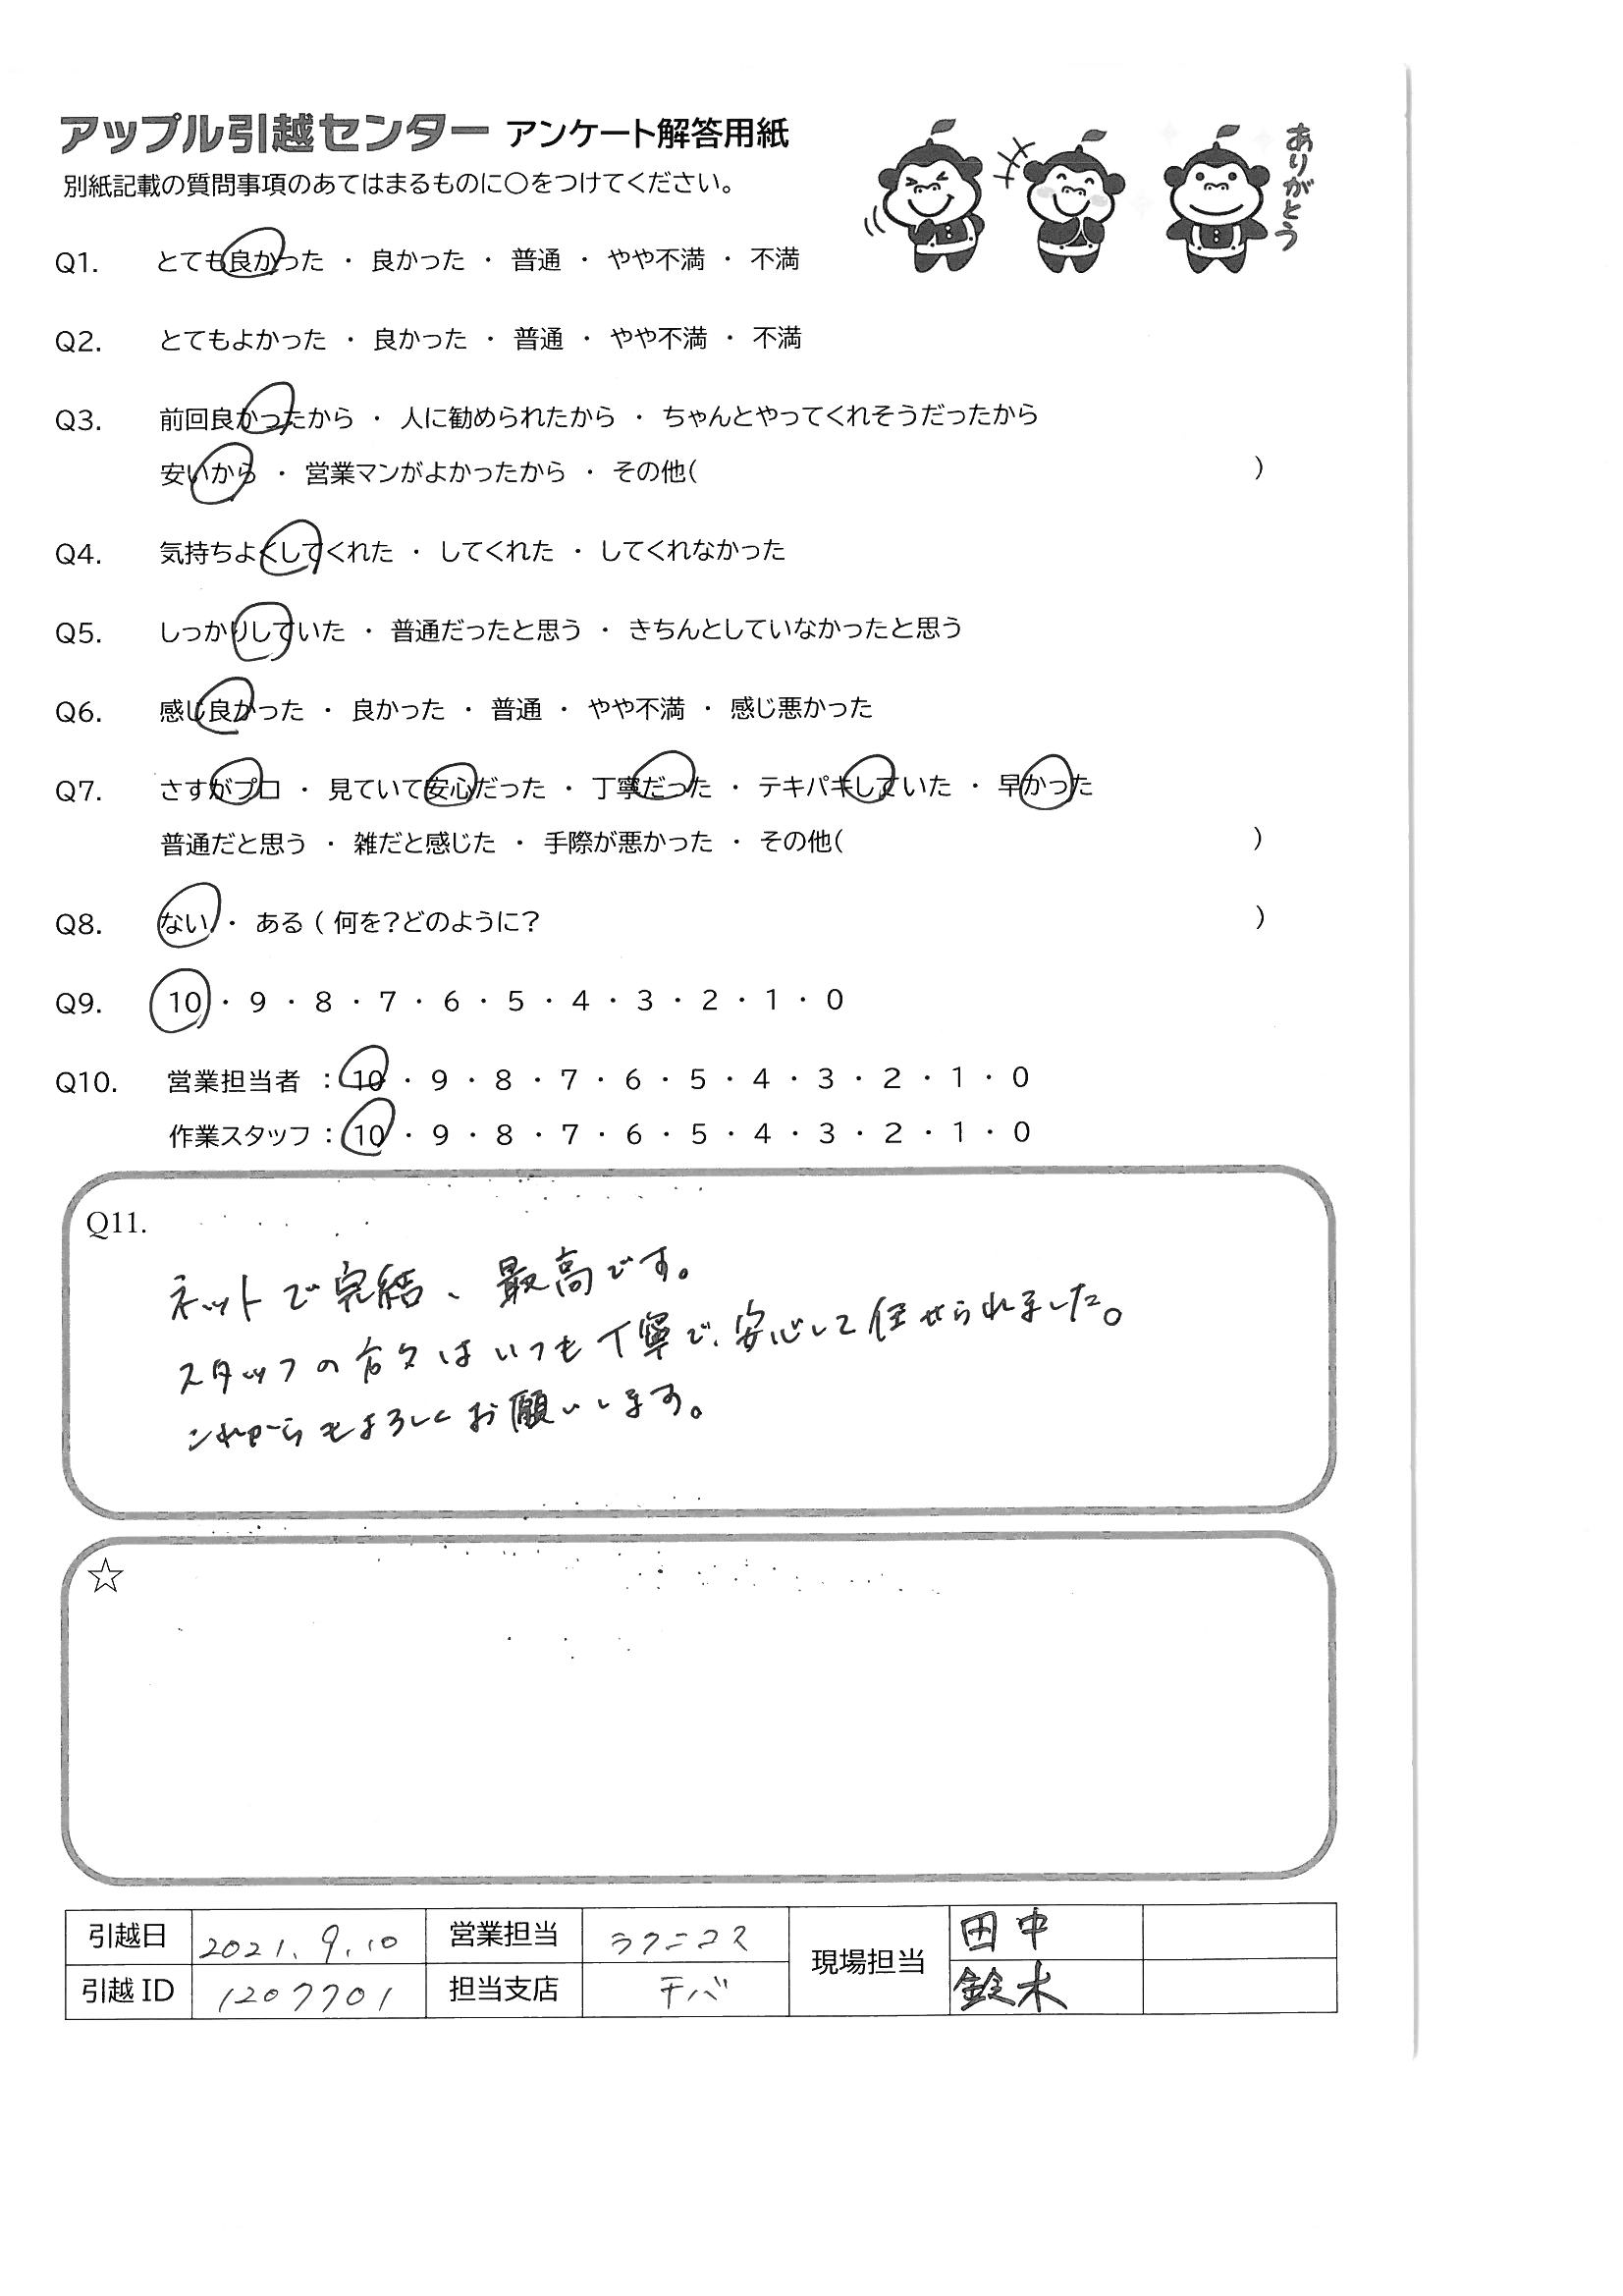 アップル引越センター アンケート解答用紙
別紙記載の質問事項のあてはまるものに〇をつけてください。
ありがとう
Q1. とても良かった ・ 良かった ・ 普通 ・ やや不満 ・ 不満
Q2. とてもよかった ・ 良かった ・ 普通 ・ やや不満 ・ 不満
Q3. 前回良かったから ・ 人に勧められたから ・ ちゃんとやってくれそうだったから
安いから ・ 営業マンがよかったから ・ その他( )
Q4. 気持ちよくしてくれた ・ してくれた ・ してくれなかった
Q5. しっかりしていた ・ 普通だったと思う ・ きちんとしていなかったと思う
Q6. 感じ良かった ・ 良かった ・ 普通 ・ やや不満 ・ 感じ悪かった
Q7. さすがプロ ・ 見ていて安心だった ・ 丁寧だった ・ テキパキしていた ・ 早かった
普通だと思う ・ 雑だと感じた ・ 手際が悪かった ・ その他( )
Q8. ない ・ ある ( 何を?どのように? )
Q9. 10 ・ 9 ・ 8 ・ 7 ・ 6 ・ 5 ・ 4 ・ 3 ・ 2 ・ 1 ・ 0
Q10. 営業担当者 : 10 ・ 9 ・ 8 ・ 7 ・ 6 ・ 5 ・ 4 ・ 3 ・ 2 ・ 1 ・ 0
作業スタッフ : 10 ・ 9 ・ 8 ・ 7 ・ 6 ・ 5 ・ 4 ・ 3 ・ 2 ・ 1 ・ 0
Q11.
ネットで完結、最高です。
スタッフの方々はいつも丁寧で、安心して任せられました。
これからもよろしくお願いします。
☆
引越日 2021.9.10 営業担当 ラクニコス 現場担当 田中
引越ID 1207701 担当支店 千バ 鈴木